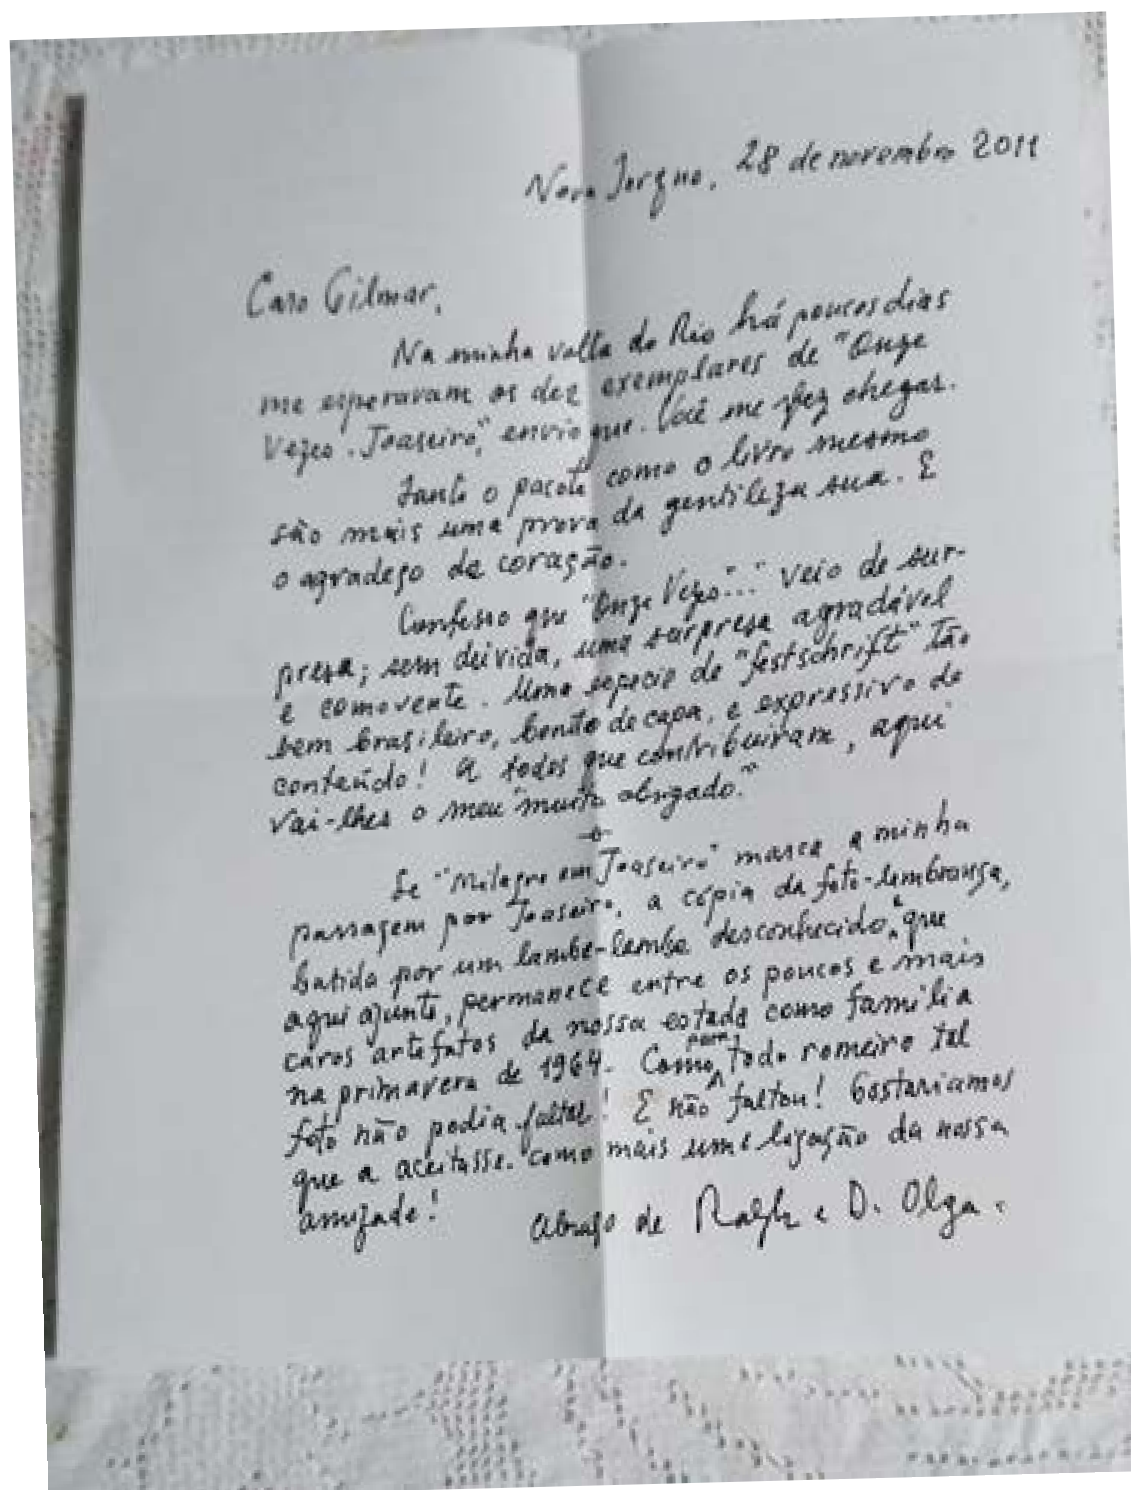 Nova Iorque, 28 de novembro 2011
Caro Gilmar,
Na minha volta do Rio há poucos dias
me esperavam os dez exemplares de "Onze
Vezes Joaseiro," envio que Você me fez chegar.
Tanto o pacote como o livro mesmo
são mais uma prova da gentileza sua. E
o agradeço de coração.
Confesso que "Onze Vezes..." veio de sur-
presa; sem dúvida, uma surpresa agradável
e comovente. Uma especie de "festschrift" tão
bem brasileiro, bonito de capa, e expressivo de
conteúdo! A todos que contribuiram, aqui
vai-lhes o meu "muito obrigado."
Se "Milagre em Joaseiro" marca a minha
passagem por Joaseiro, a cópia da foto-lembrança,
batida por um lambe-lambe desconhecido, que
aqui ajunto, permanece entre os poucos e mais
caros artefatos da nossa estada como família
na primavera de 1964. Como para todo romeiro tal
foto não podia faltar! E não faltou! Gostariamos
que a aceitasse como mais uma ligação da nossa
amizade!
Abraço de Ralph e D. Olga.